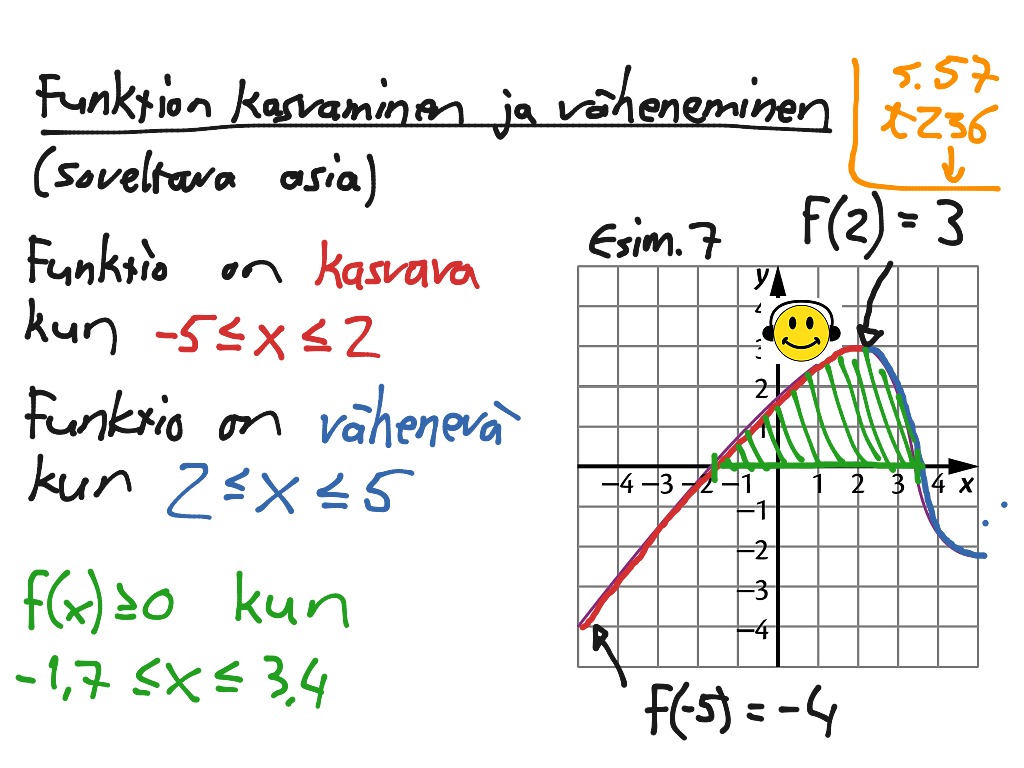 Funktion kasvaminen ja väheneminen
(soveltava asia)
s. 57
t236
Funktio on kasvava
kun -5 ≤ x ≤ 2
Funktio on vähenevä
kun 2 ≤ x ≤ 5
f(x) ≥ 0 kun
-1,7 ≤ x ≤ 3,4
Esim. 7
f(2) = 3
y
4
3
2
1
−4 −3 −2 −1 1 2 3 4 x
−1
−2
−3
−4
f(-5) = -4